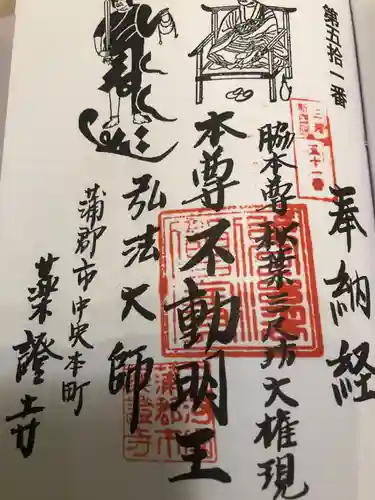 第五拾一番
奉納経
三河
新四国
五十一番
脇本尊 秋葉三尺坊大権現
本尊不動明王
弘法大師
蒲郡市中央本町
薬證寺